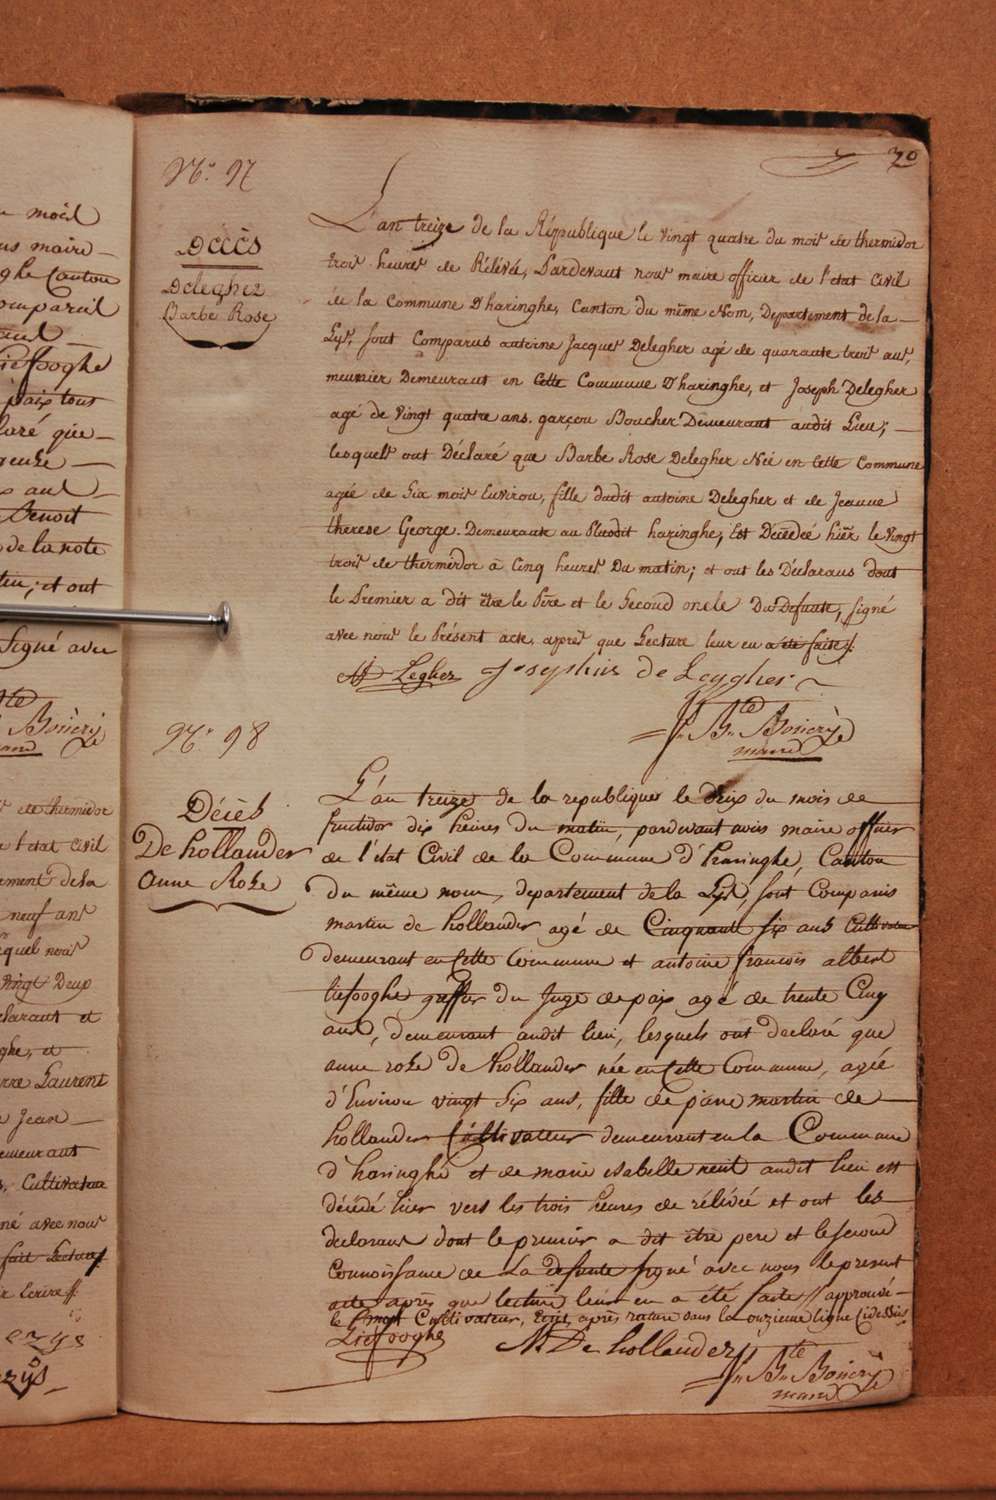 moéil
us maire
ghe Canton
omparüil
aul
Liefooghe
paix tous
laré que
aul
Benoit
de la note
tin; et ont
Signé avec
Bonierÿe
maire
de thermidor
l'etat Civil
ement de la
neuf ans
quel nous
Vingt Deux
clarant et
ghe, et
rre Laurent
Jean
emeurant
Cultivateur
né avec nous
fait Lecture
Ecrire
N.° 97
70
Décès
Delegher
Barbe Rose
L'an treize de la République le vingt quatre du mois de thermidor
trois heures de Rélévée, Pardevant nous maire officier de l'état Civil
de la Commune D'haringhe, Canton du même Nom, Departement de la
Lys, sont Comparus antoine Jacques Delegher agé de quarante trois ans,
meunier Demeurant en Cette Commune D'haringhe, et Joseph Delegher
agé de Vingt quatre ans. garçon Boucher Demeurant audit Lieu;
lesquels ont Déclaré que Barbe Rose Delegher Née en Cette Commune
agée de Six mois Environ, fille dudit antoine Delegher et de Jeanne
therese George. Demeurante au Plaidit haringhe, Est Décédée hier le Vingt
trois de thermidor à Cinq heures Du matin; et ont les Déclarans dont
le Premier a dit être le Père et le Second oncle Du Defunte, signé
avec nous le Présent acte, après que Lecture leur en a été faite/.
Legher Josephus De Leygher
J. Bte Bonierÿe
maire
N.° 98
Décès
De hollander
Anne Rose
L'an treize de la republique le deux du mois de
fructidor dix heures du matin, pardevant nous maire officier
de l'état Civil de la Commune d'haringhe, Canton
du même nom, departement de la Lys, sont Comparus
martin de hollander agé de Cinquante six ans Cultivateur
demeurant en Cette Commune et antoine francois albert
liefooghe greffier du Juge de paix agé de trente Cinq
ans, demeurant audit lieu, lesquels ont declaré que
anne rose De hollander née en Cette Commune, agée
d'Environ vingt Six ans, fille de martin de
hollander Cultivateur demeurant en la Commune
d'haringhe et de marie isabelle audit lieu est
décédé hier vers les trois heures de rélévée et ont les
declarans dont le premier a dit être pere et le second
Connoissance de La defunte signé avec nous le present
acte après que lecture leur en a été faite // approuvé
le mot Cultivateur, Ecrit après rature dans la onzieme ligne Cidessus
Liefooghe M De hollander
J. Bte Bonierÿe
maire